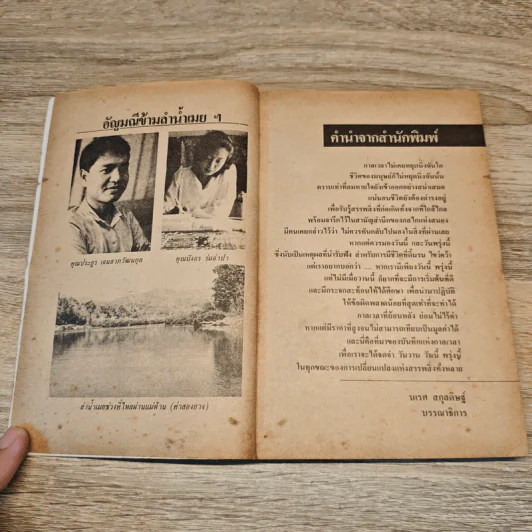 อัญมณีข้ามลำน้ำเมย ๆ
คุณประธูร เจนลาภวัฒนกุล
คุณบังอร ร่มจำปา
ลำน้ำเมยช่วงที่ไหลผ่านแม่ต้าน (ท่าสองยาง)
คำนำจากสำนักพิมพ์
กาลเวลาไม่เคยหยุดนิ่งฉันใด
ชีวิตของมนุษย์ก็ไม่หยุดนิ่งฉันนั้น
ตราบเท่าที่ลมหายใจยังเข้าออกอย่างสม่ำเสมอ
แน่นอนชีวิตยังต้องดำรงอยู่
เพื่อรับรู้สรรพสิ่งที่ก่อเกิดทั้งจากที่ใกล้ไกล
พร้อมจารึกไว้ในสามัญสำนึกของกลไกแห่งสมอง
มีคนเคยกล่าวไว้ว่า ไม่ควรหันกลับไปมองในสิ่งที่ผ่านเลย
หากแต่ควรมองวันนี้ และวันพรุ่งนี้
ซึ่งนับเป็นเหตุผลที่น่ารับฟัง สำหรับการมีชีวิตที่ดิ้นรน ไขว่คว้า
แต่เราอยากบอกว่า ... หากเรามีเพียงวันนี้ พรุ่งนี้
แต่ไม่มีเมื่อวานนี้ ก็ยากที่จะมีการเริ่มต้นที่ดี
และมีกระจกสะท้อนให้ได้ศึกษา เพื่อนำมาปฏิบัติ
ให้ข้อผิดพลาดน้อยที่สุดเท่าที่จะทำได้
กาลเวลาที่ย้อนหลัง ย่อมไม่ไร้ค่า
หากแต่มีราคาที่สูงจนไม่สามารถเทียบเป็นมูลค่าได้
และนี่คือที่มาของบันทึกแห่งกาลเวลา
เพื่อเราจะได้จดจำ วันวาน วันนี้ พรุ่งนี้
ในทุกขณะของการเปลี่ยนแปลงแห่งสรรพสิ่งทั้งหลาย
นเรศ สกุลดิษฐ์
บรรณาธิการ